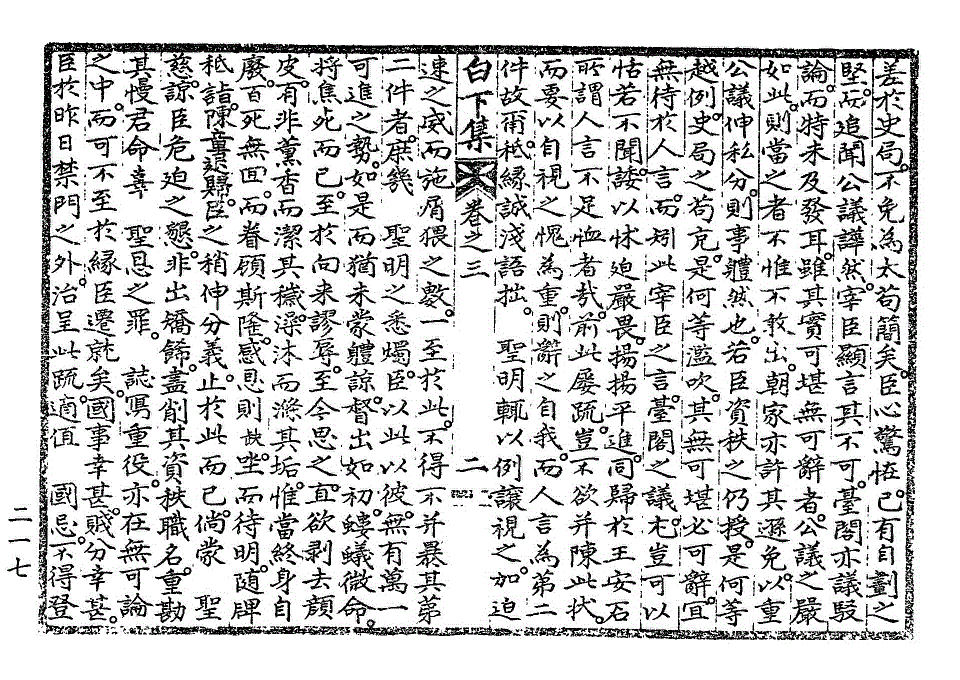 差於史局。不免為太苟簡矣。臣心驚恠。已有自劃之
堅。而追聞公議譁然。宰臣顯言其不可。臺閣亦議駁
論。而特未及發耳。雖其實可堪無可辭者。公議之嚴
如此。則當之者不惟不敢出。朝家亦許其遜免。以重
公議伸私分。則事體然也。若臣資秩之仍授。是何等
越例。史局之苟充。是何等濫吹。其無可堪必可辭。宜
無待於人言。而矧此宰臣之言。臺閣之議。尤豈可以
恬若不聞。諉以怵迫嚴畏。揚揚平進。同歸於王安石
所謂人言不足恤者哉。前此屢疏。豈不欲并陳此狀。
而要以自視之愧為重。則辭之自我。而人言為第二
件故爾。秪緣誠淺語拙。 聖明輒以例讓視之。加迫
白下集 卷之三 二
速之威而施屑猥之數。一至於此。不得不并暴其第
二件者。庶幾 聖明之悉燭。臣以此以彼。無有萬一
可進之勢。如是而猶未蒙體諒。督出如初。螻蟻微命。
將焦死而已。至於向來謬辱。至今思之。直欲剥去顔
皮。有非薰香而潔其穢。澡沐而滌其垢。惟當終身自
廢。百死無回。而眷顧斯隆。感恩則 坐而待明。随牌
秪詣。陳章退縣。臣之稍伸分義。止於此而已。倘蒙 聖
慈。諒臣危迫之懇。非出矯飾。盡削其資秩職名。重勘
其慢君命辜 聖恩之罪。 誌寫重役。亦在無可論
之中。而可不至於緣臣遷就矣。國事幸甚。賤分幸甚。
臣於昨日禁門之外。治呈此疏。適値 國忌。不得登
二一七